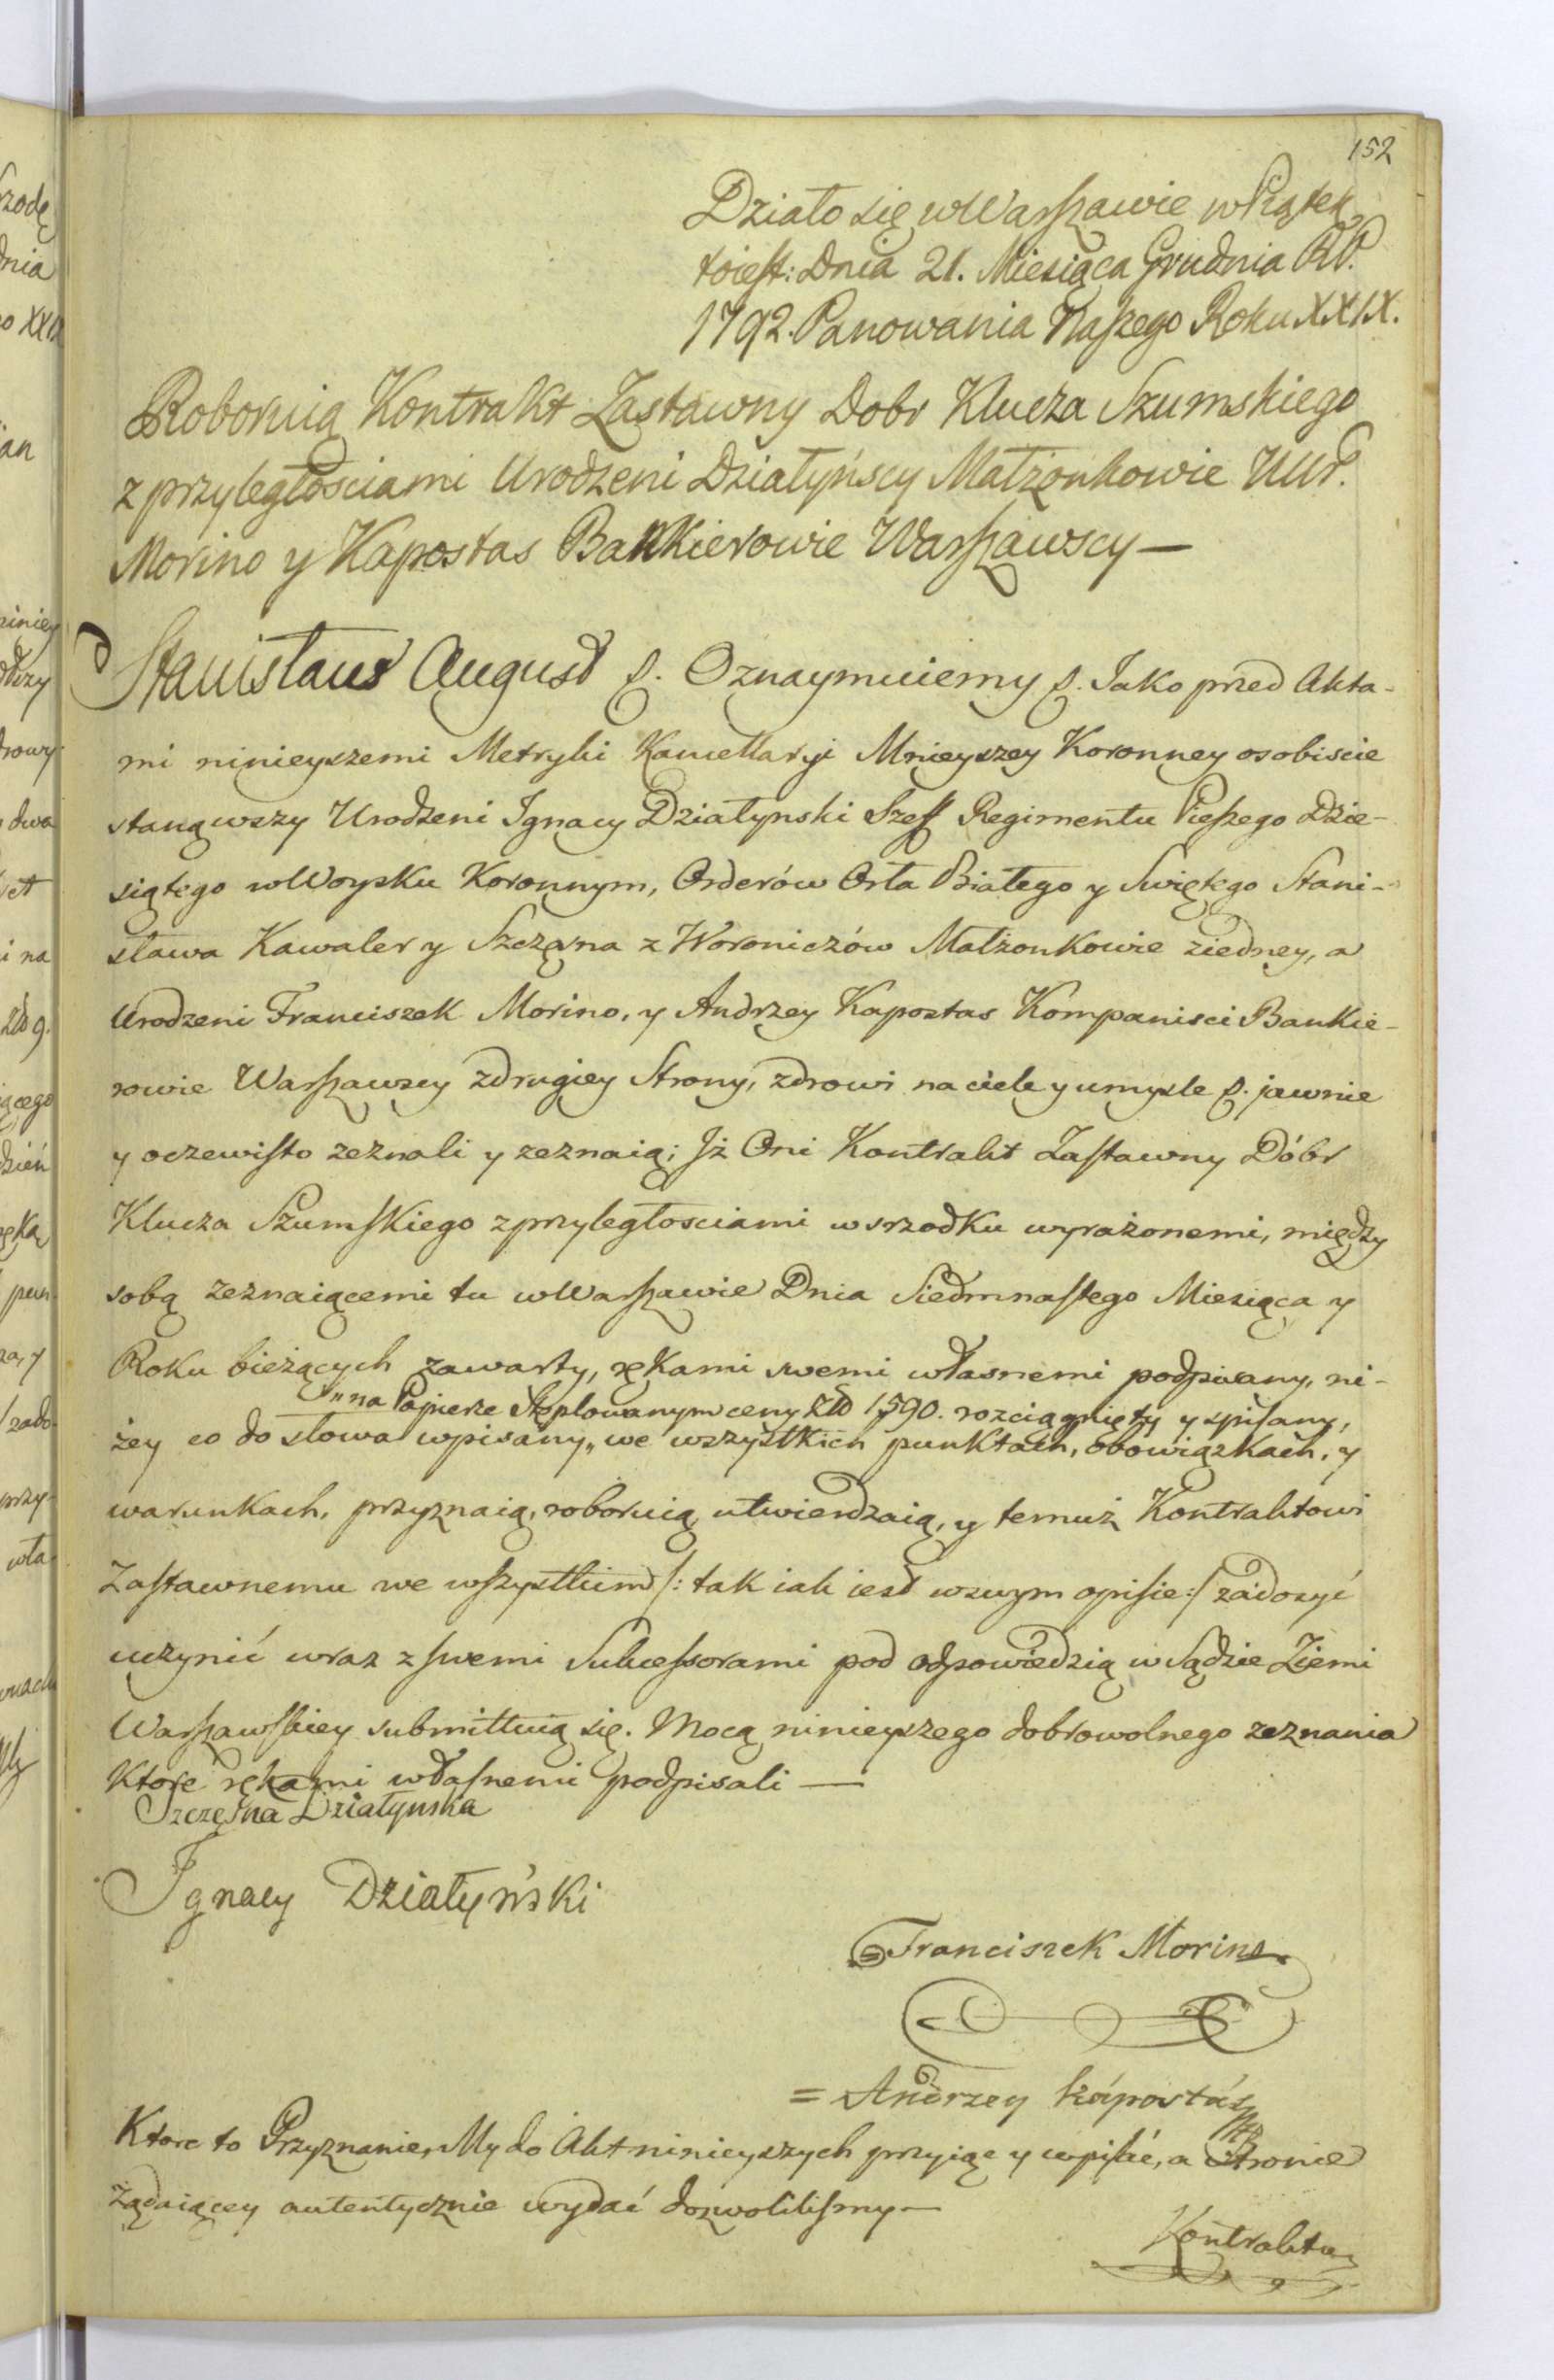 152
Działo się w Warszawie w Piątek
toiest: Dnia 21. Miesiąca Grudnia RP.
1792. Panowania Naszego Roku XXIX.
Roboruią Kontrakt Zastawny Dobr Klucza Szumskiego
z przyległościami Urodzeni Działyńscy Małżonkowie UUr.
Morino y Kapostas Bankierowie Warszawscy —
Stanisław August p. Oznaymuiemy p. Jako przed Akta-
mi ninieyszemi Metryki Kancellaryi Mnieyszey Koronney osobiscie
stanąwszy Urodzeni Ignacy Działynski Szeff Regimentu Pieszego Dzie-
siątego w Woysku Koronnym, Orderów Orła Białego y Swiętego Stani-
sława Kawaler y Szczęsna z Woroniczów Małżonkowie ziedney, a
Urodzeni Franciszek Morino, y Andrzey Kapostas Kompanisci Bankie-
rowie Warszawscy zdrugiey Strony, zdrowi na ciele y umysle p. jawnie
y oczewisto zeznali y zeznaią; Iż Oni Kontrakt Zastawny Dóbr
Klucza Szumskiego z przyległosciami wsrzodku wyrażonemi, między
sobą zeznaiącemi tu w Warszawie Dnia Siedmnastego Miesiąca y
Roku bieżących zawarty, rękami swemi własnemi podpisany, ni-
„na Papierze Stęplowanym ceny Złł 1,590. rozciągnięty y spisany,
żey co do słowa wpisany „ we wszystkich punktach, obowiązkach, y
warunkach, przyznaią, roboruią, utwierdzaią, y temuż Kontraktowi
Zastawnemu we wszystkim /: tak iak iest wswym opisie :/ zadosyć
uczynić wraz z swemi Sukcessorami pod odpowiedzią w Sądzie Ziemi
Warszawskiey submittuią się. Mocą ninieyszego dobrowolnego zeznania
Ktore rękami własnemi podpisali —
Szczęsna Działynska
Ignacy Działyński
Franciszek Morino
= Andrzey Kápostás
Ktore to Przyznanie, My do Akt ninieyszych przyiąć y wpisać, a Stronie
żądaiącey autentycznie wydać dozwolilismy —
Kontraktu